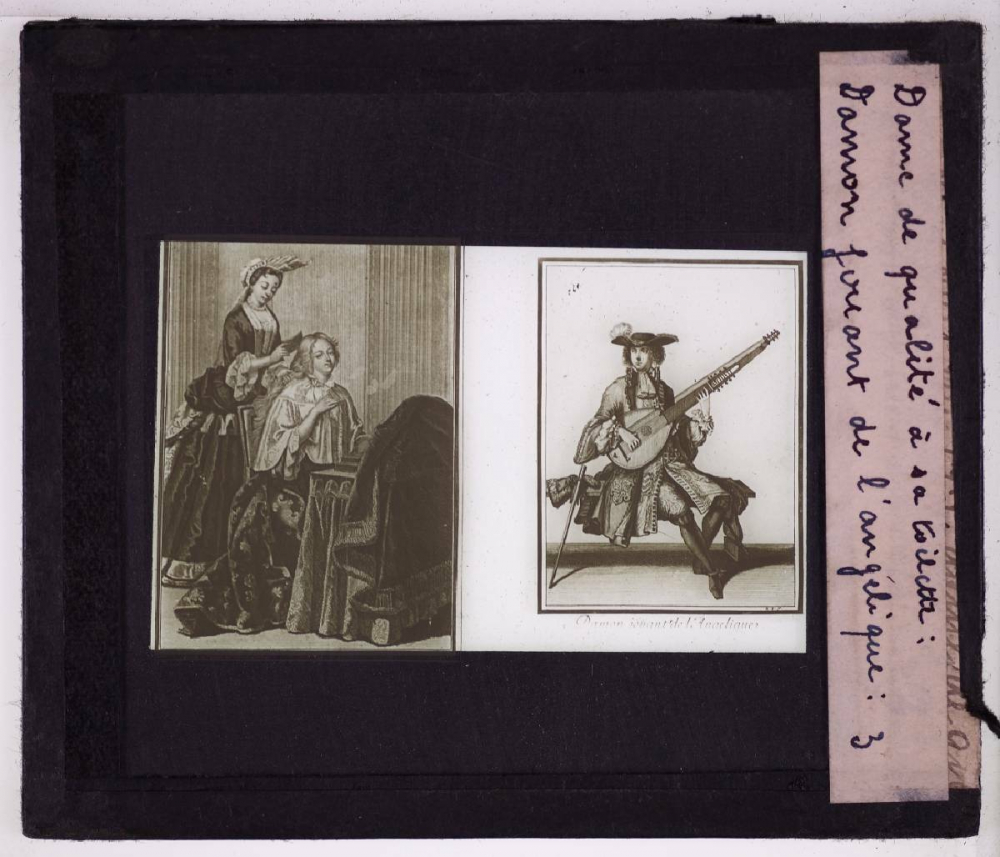 Dame de qualité à sa toilette :
Damon jouant de l'angélique : 3
Damon joüant de l'Angelique